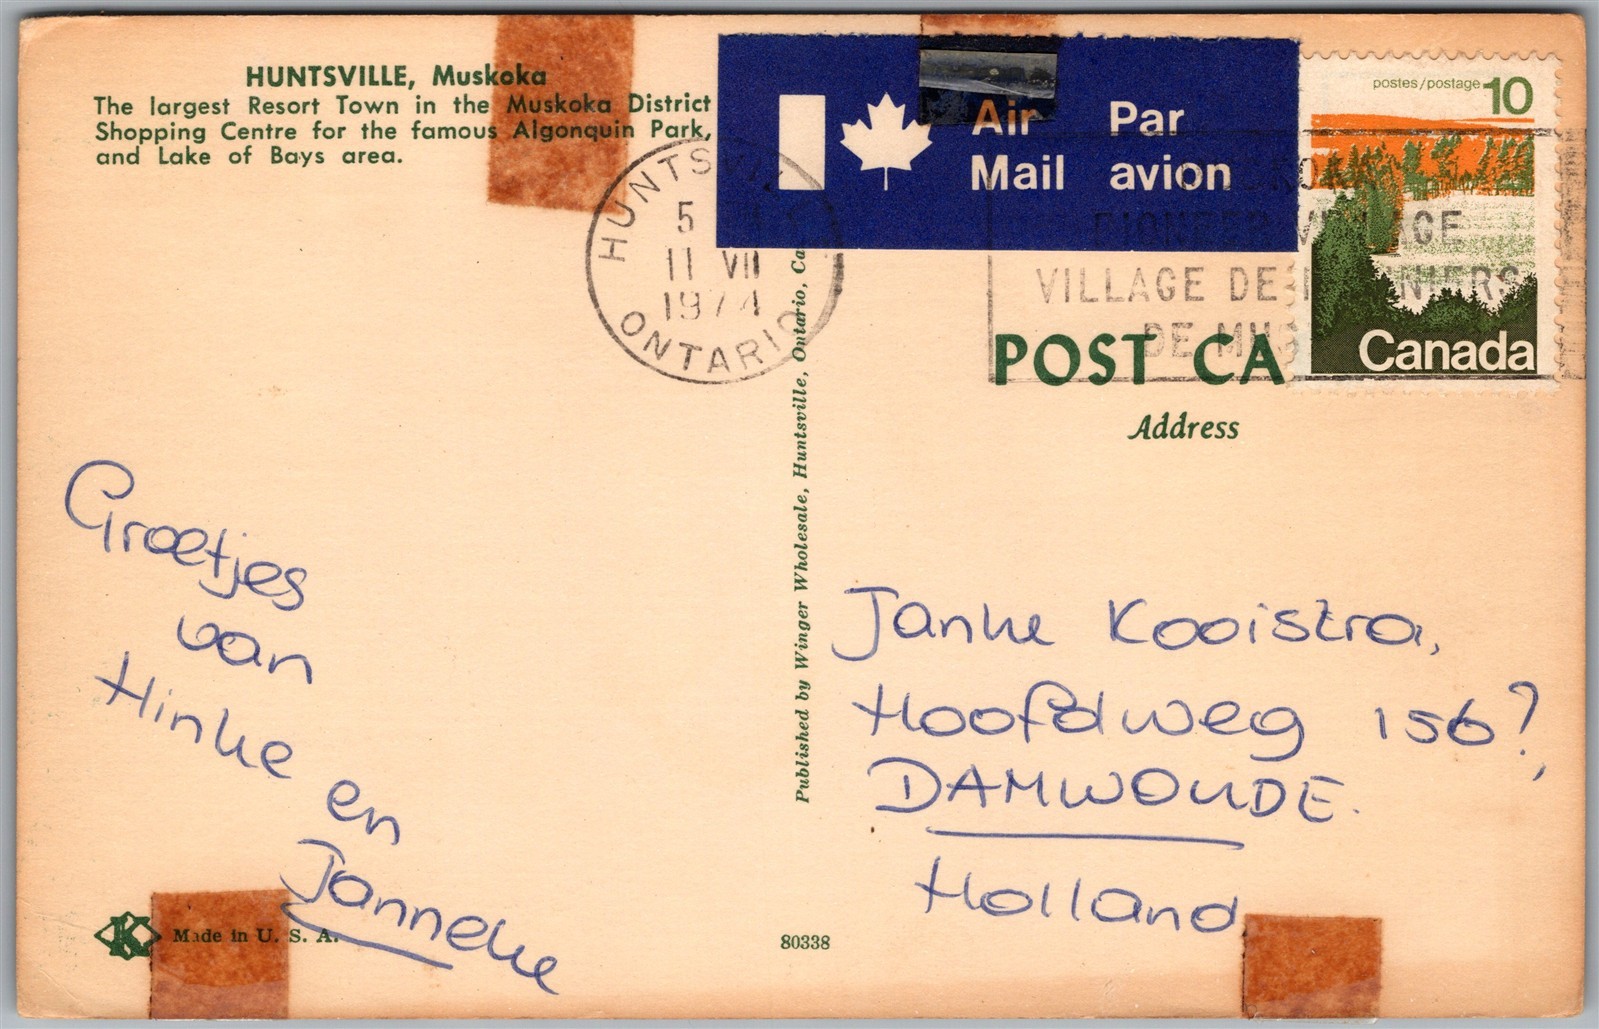 HUNTSVILLE, Muskoka
The largest Resort Town in the Muskoka District
Shopping Centre for the famous Algonquin Park,
and Lake of Bays area.
Air Par
Mail avion
postes/postage 10
Canada
HUNTSVIL
5
11 VII
1974
ONTARIO
VILLAGE DE
DE MUS
POST CA
Address
Published by Winger Wholesale, Huntsville, Ontario, Ca
Groetjes
van
Hinke en
Janneke
Janke Kooistra,
Hoofdweg 156?,
DAMWOUDE.
Holland
K Made in U. S. A.
80338